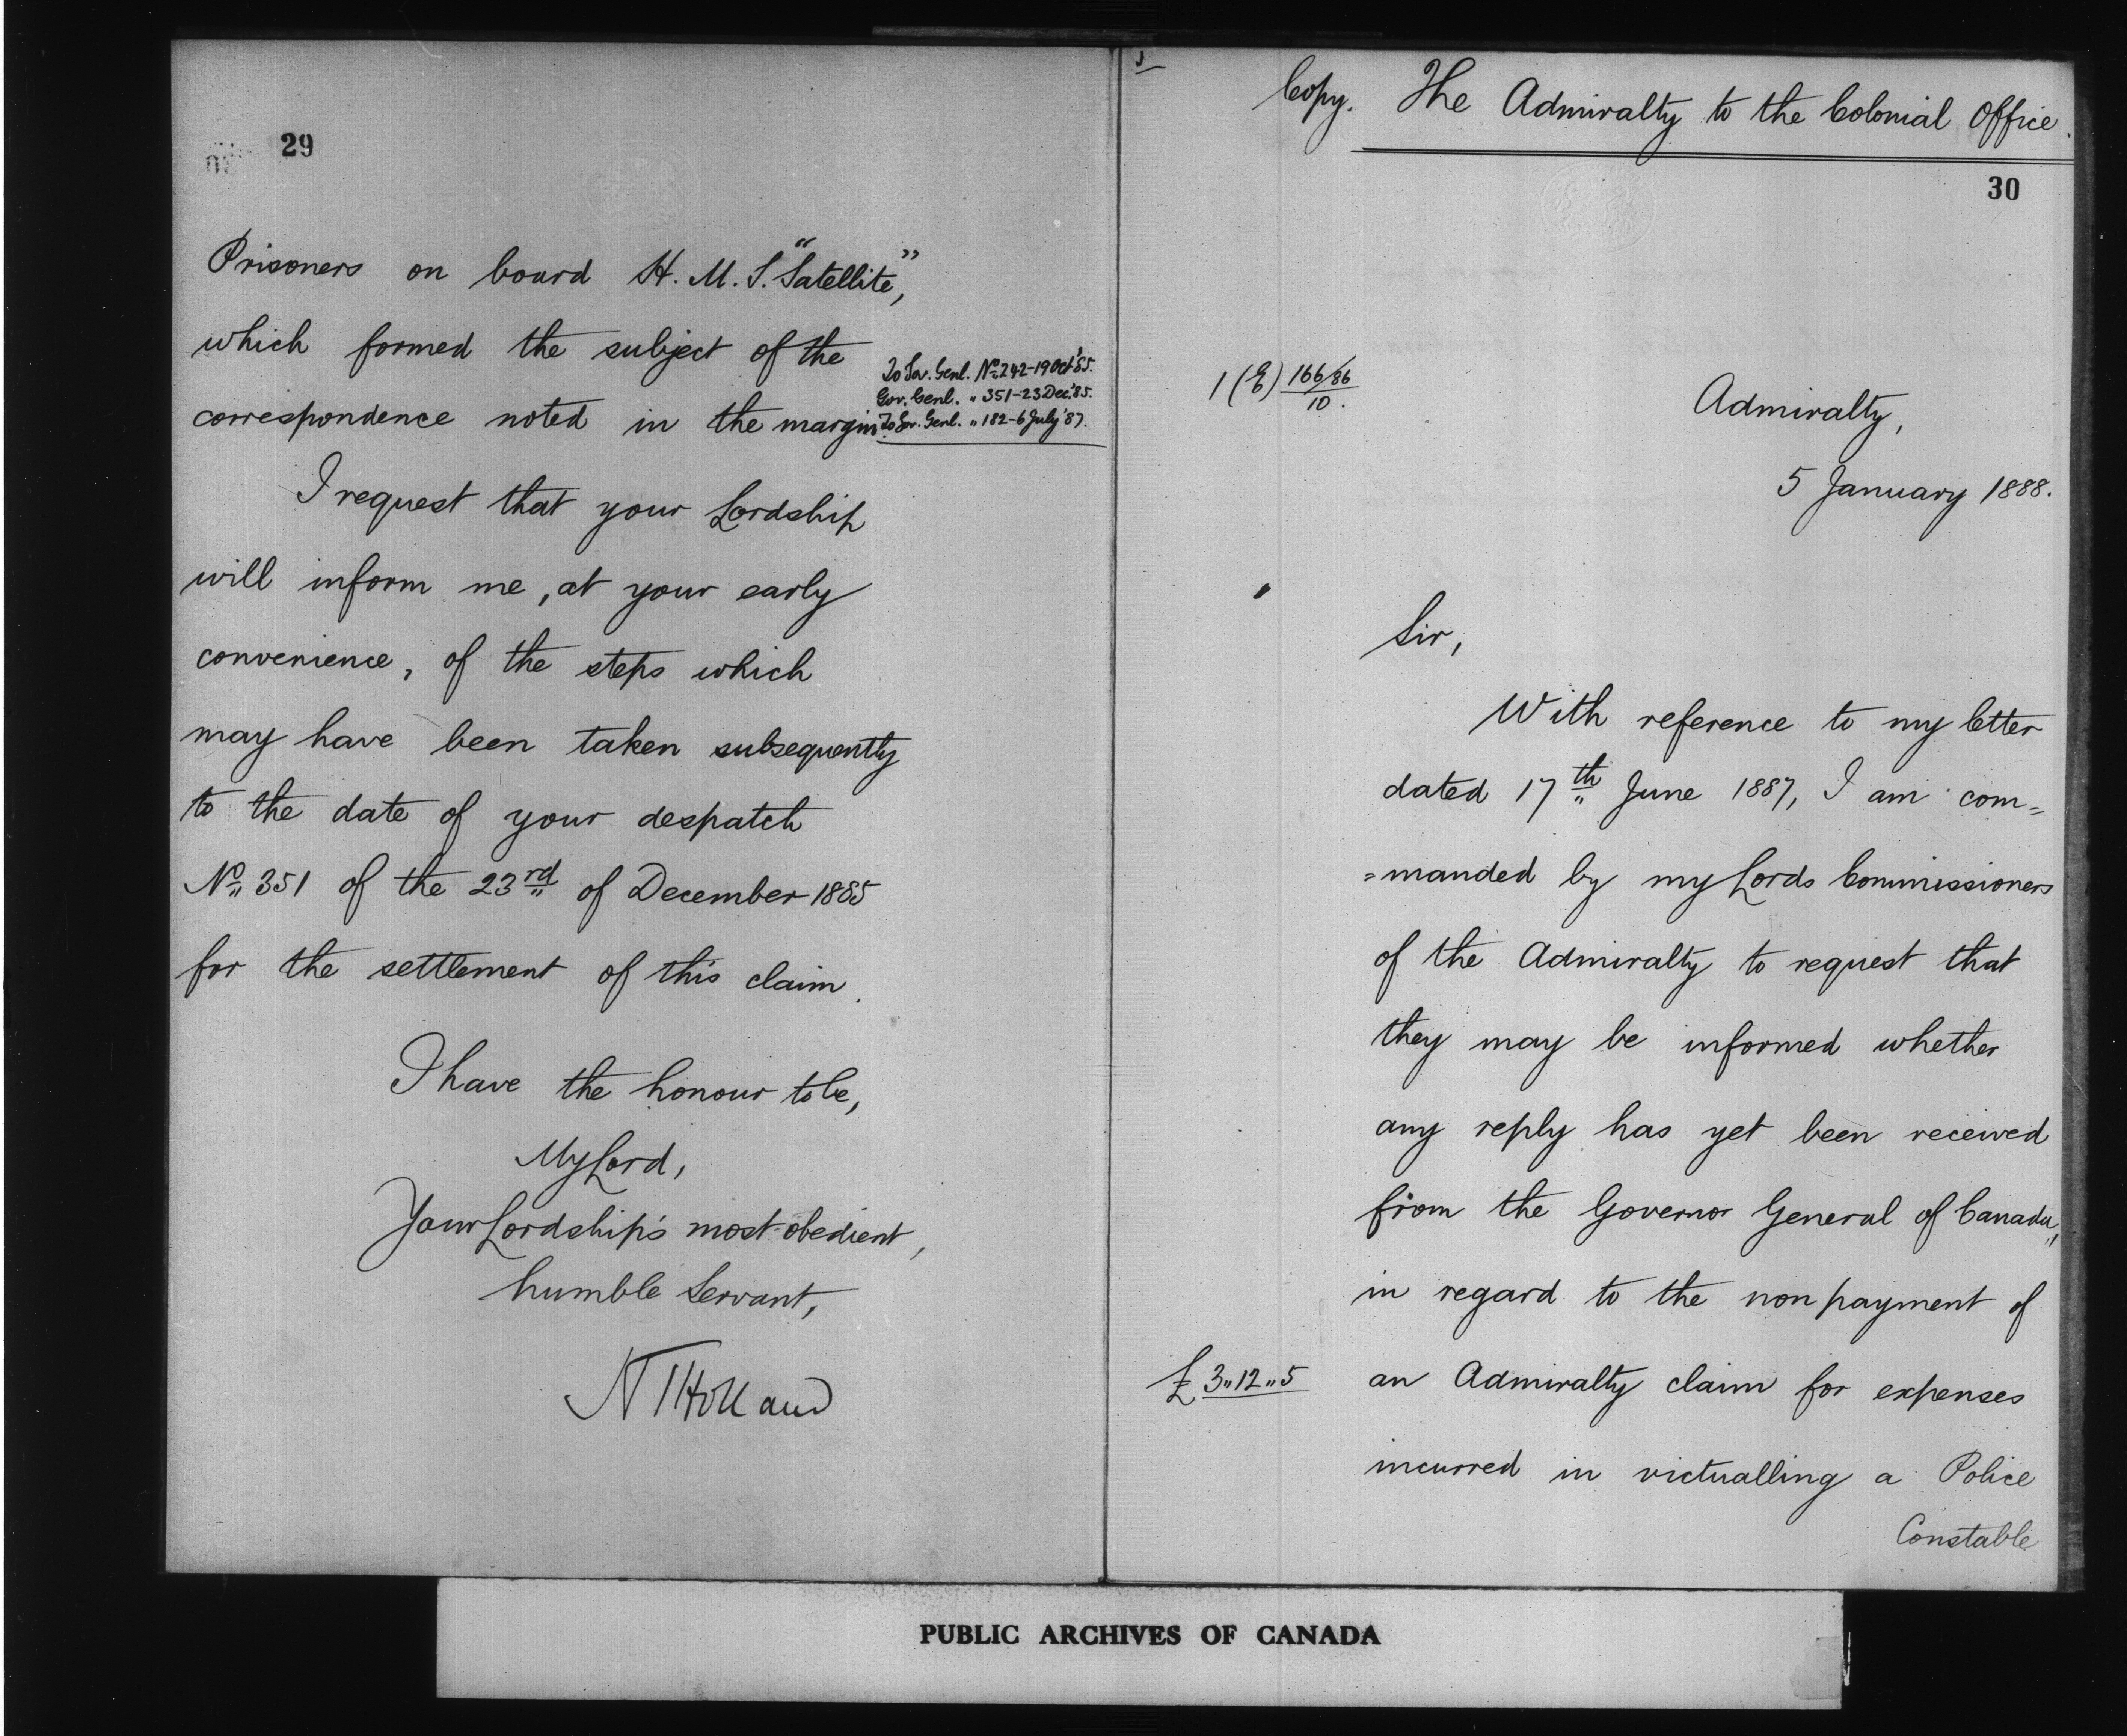 29
Prisoners on board H.M.S. "Satellite,"
which formed the subject of the
correspondence noted in the margin.
To Gov. Genl. No. 242-19 Oct '85.
Gov. Genl. " 351-23 Dec. '85.
To Gov. Genl. " 182-6 July '87.
I request that your Lordship
will inform me, at your early
convenience, of the steps which
may have been taken subsequently
to the date of your despatch
No. 351 of the 23rd of December 1885
for the settlement of this claim.
I have the honour to be,
My Lord,
Your Lordship's most obedient,
humble Servant,
Holland
Copy. The Admiralty to the Colonial Office.
30
1 (E) 166/86
10.
Admiralty,
5 January 1888.
Sir,
With reference to my letter
dated 17th June 1887, I am com=
=manded by my Lords Commissioners
of the Admiralty to request that
they may be informed whether
any reply has yet been received
from the Governor General of Canada,
in regard to the non payment of
£3"12"5 an Admiralty claim for expenses
incurred in victualling a Police
Constable
PUBLIC ARCHIVES OF CANADA